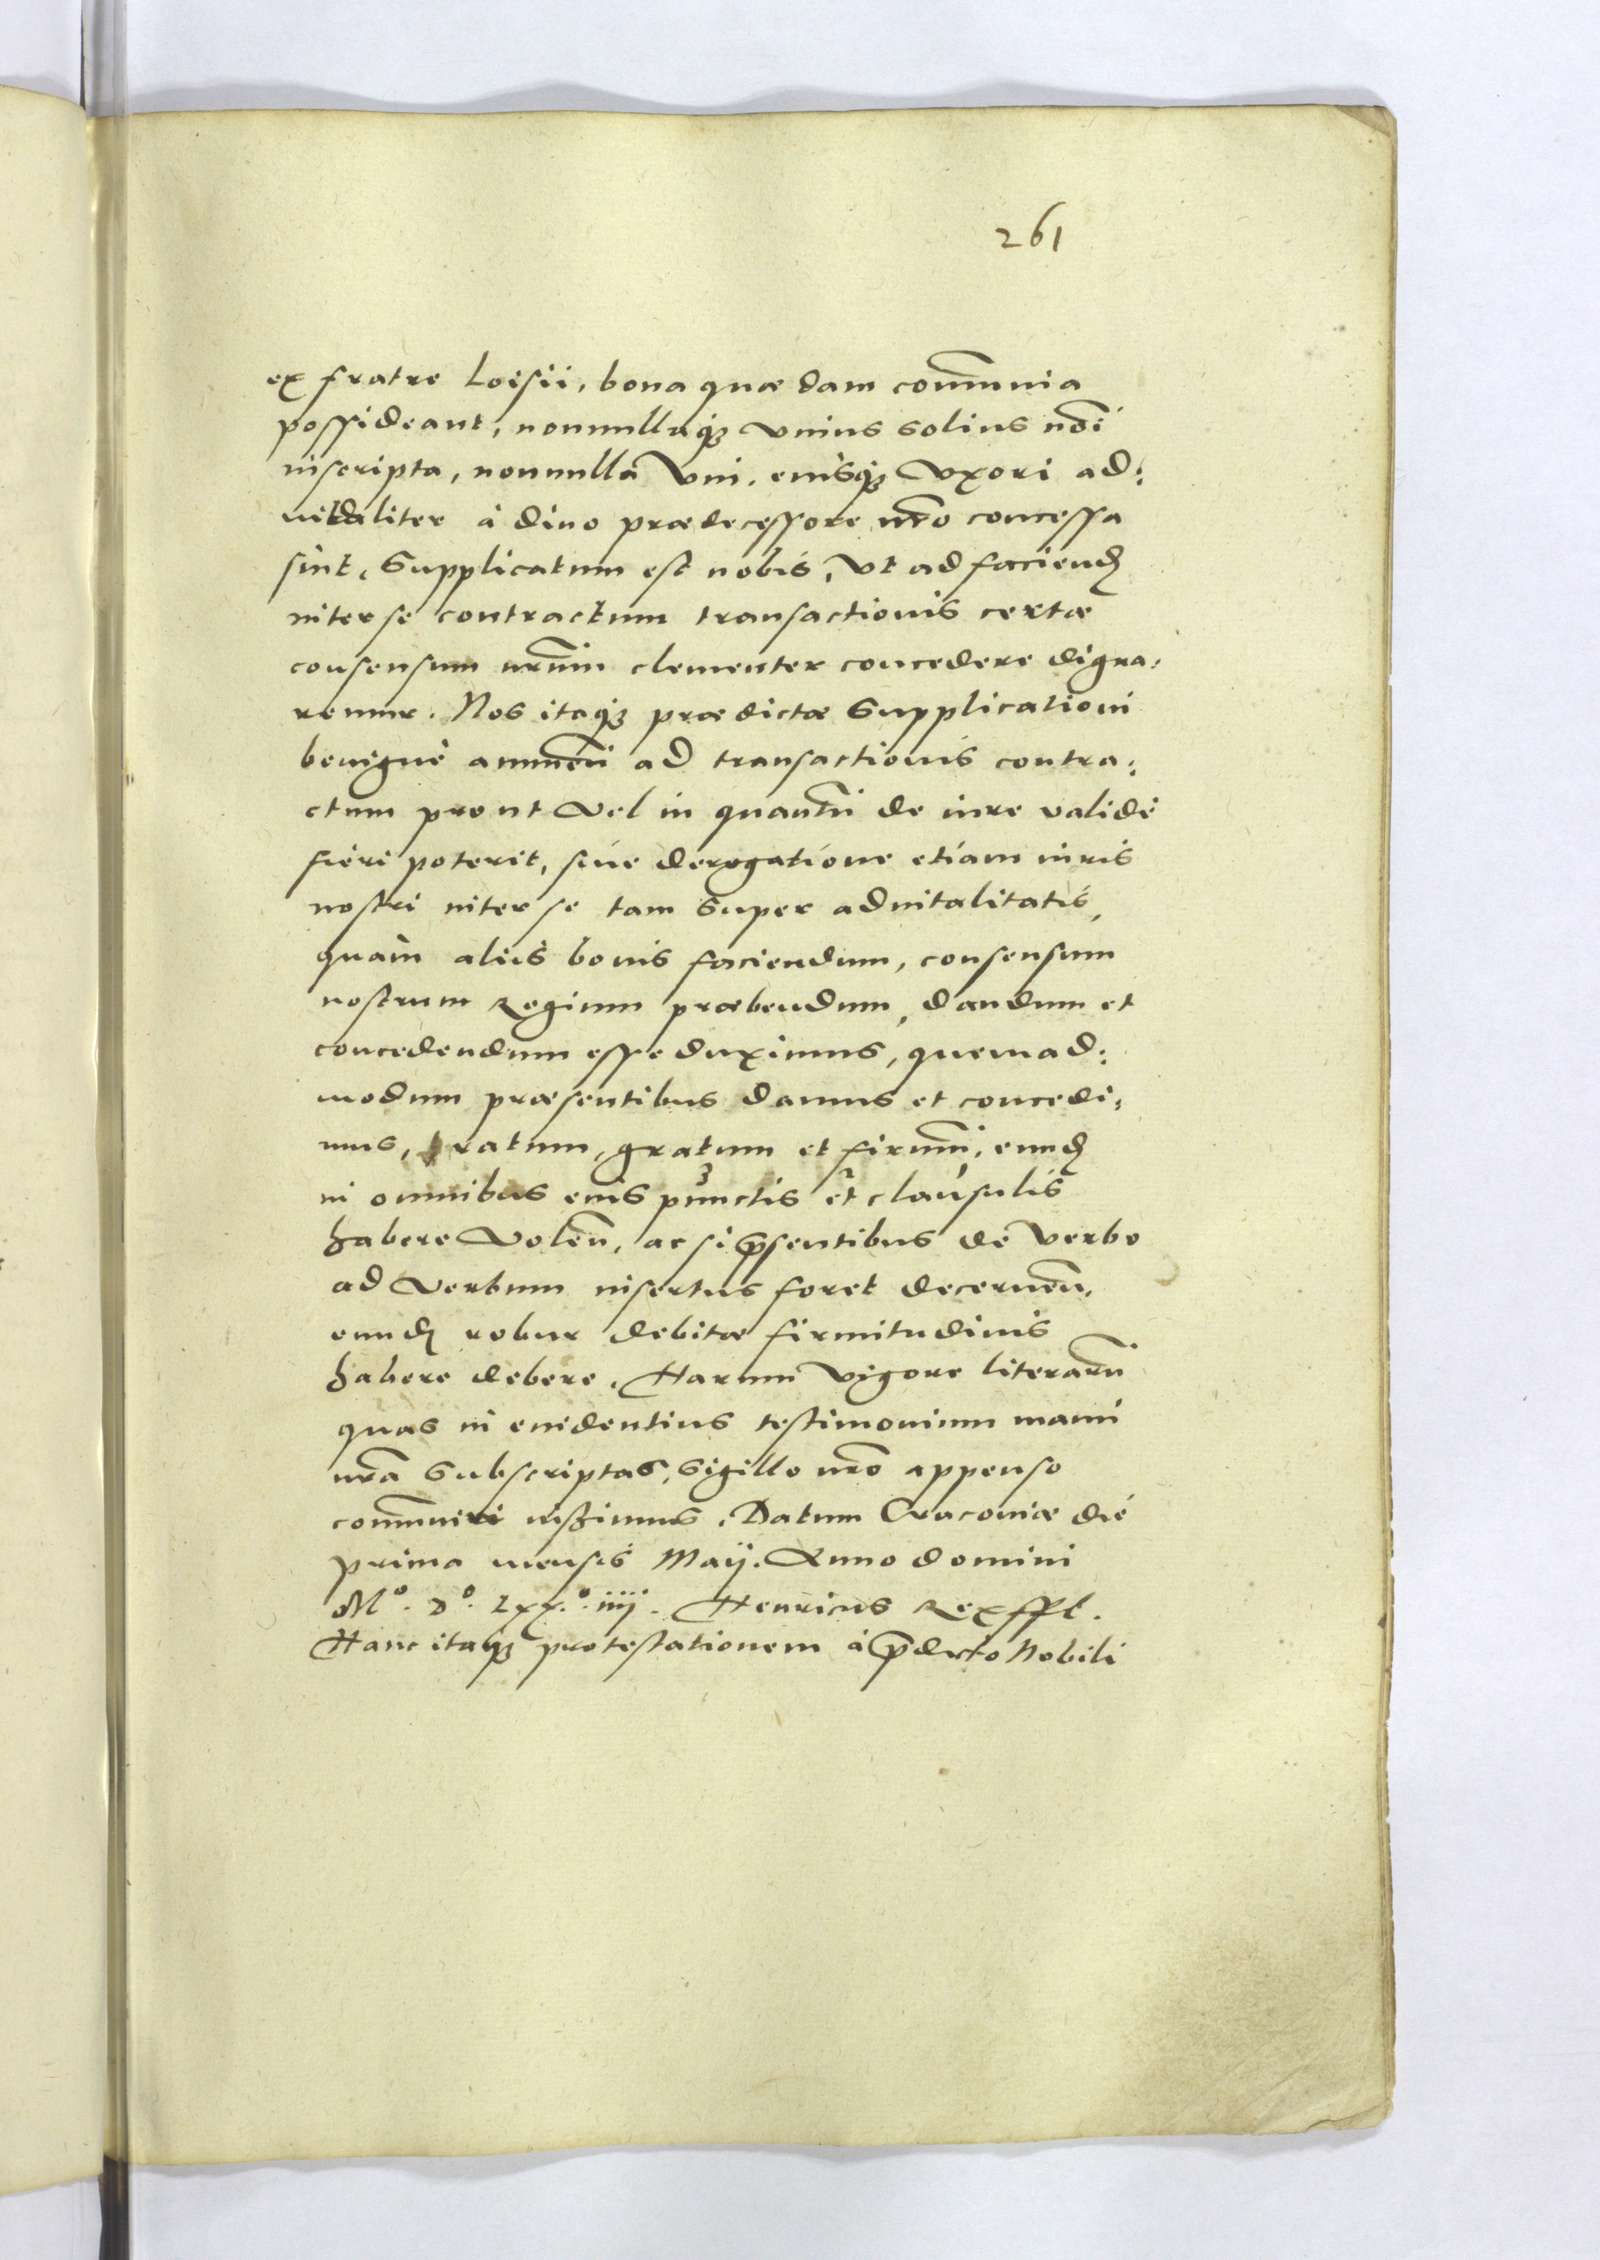 261
ex fratre Loisii, bona quædam com̃unia
possideant, nonnullaq3 vnius solius nõi
inscripta, nonnulla vni, eiusq3 vxori ad:
uitaliter à diuo prædecessore nr̃o concessa
sint, Supplicatum est nobis, vt ad faciend
inter se contractum transactionis certæ
consensum nr̃um clementer concedere digna:
remur. Nos itaq3 prædictæ Supplicationi
benignè annuen̄ ad transactionis contra:
ctum prout vel in quantũ de iure validè
fieri poterit, siue derogatione etiam iuris
nostri inter se tam super aduitalitatis,
quàm aliis bonis faciendum, consensum
nostrum Regium præbendum, dandum et
concedendum esse duximus, quemad:
modum præsentibus damus et concedi:
mus, ratum, gratum et firmũ, eund
in omnibus eius punctis et clausulis
habere volen̄, ac si p̃sentibus de verbo
ad verbum insertus foret decernen̄,
eund robur debitæ firmitudinis
habere debere. Harum vigore literarũ
quas in euidentius testimonium manu
nr̃a subscriptas, sigillo nr̃o appenso
com̃uniri iussimus. Datum Cracouiæ die
prima mensis Maij. Anno domini
Mº. Dº. Lxx.º iiij. Henricus Rex sst.
Hanc itaq3 protestationem à p̃dicto Nobili